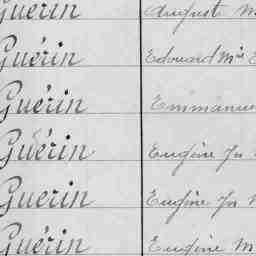 Guerin August M
Guérin Edouard Mrs E
Guérin Emmanue
Guérin Eugène Jos
Guerin Eugène Jos
Guérin Eugène M